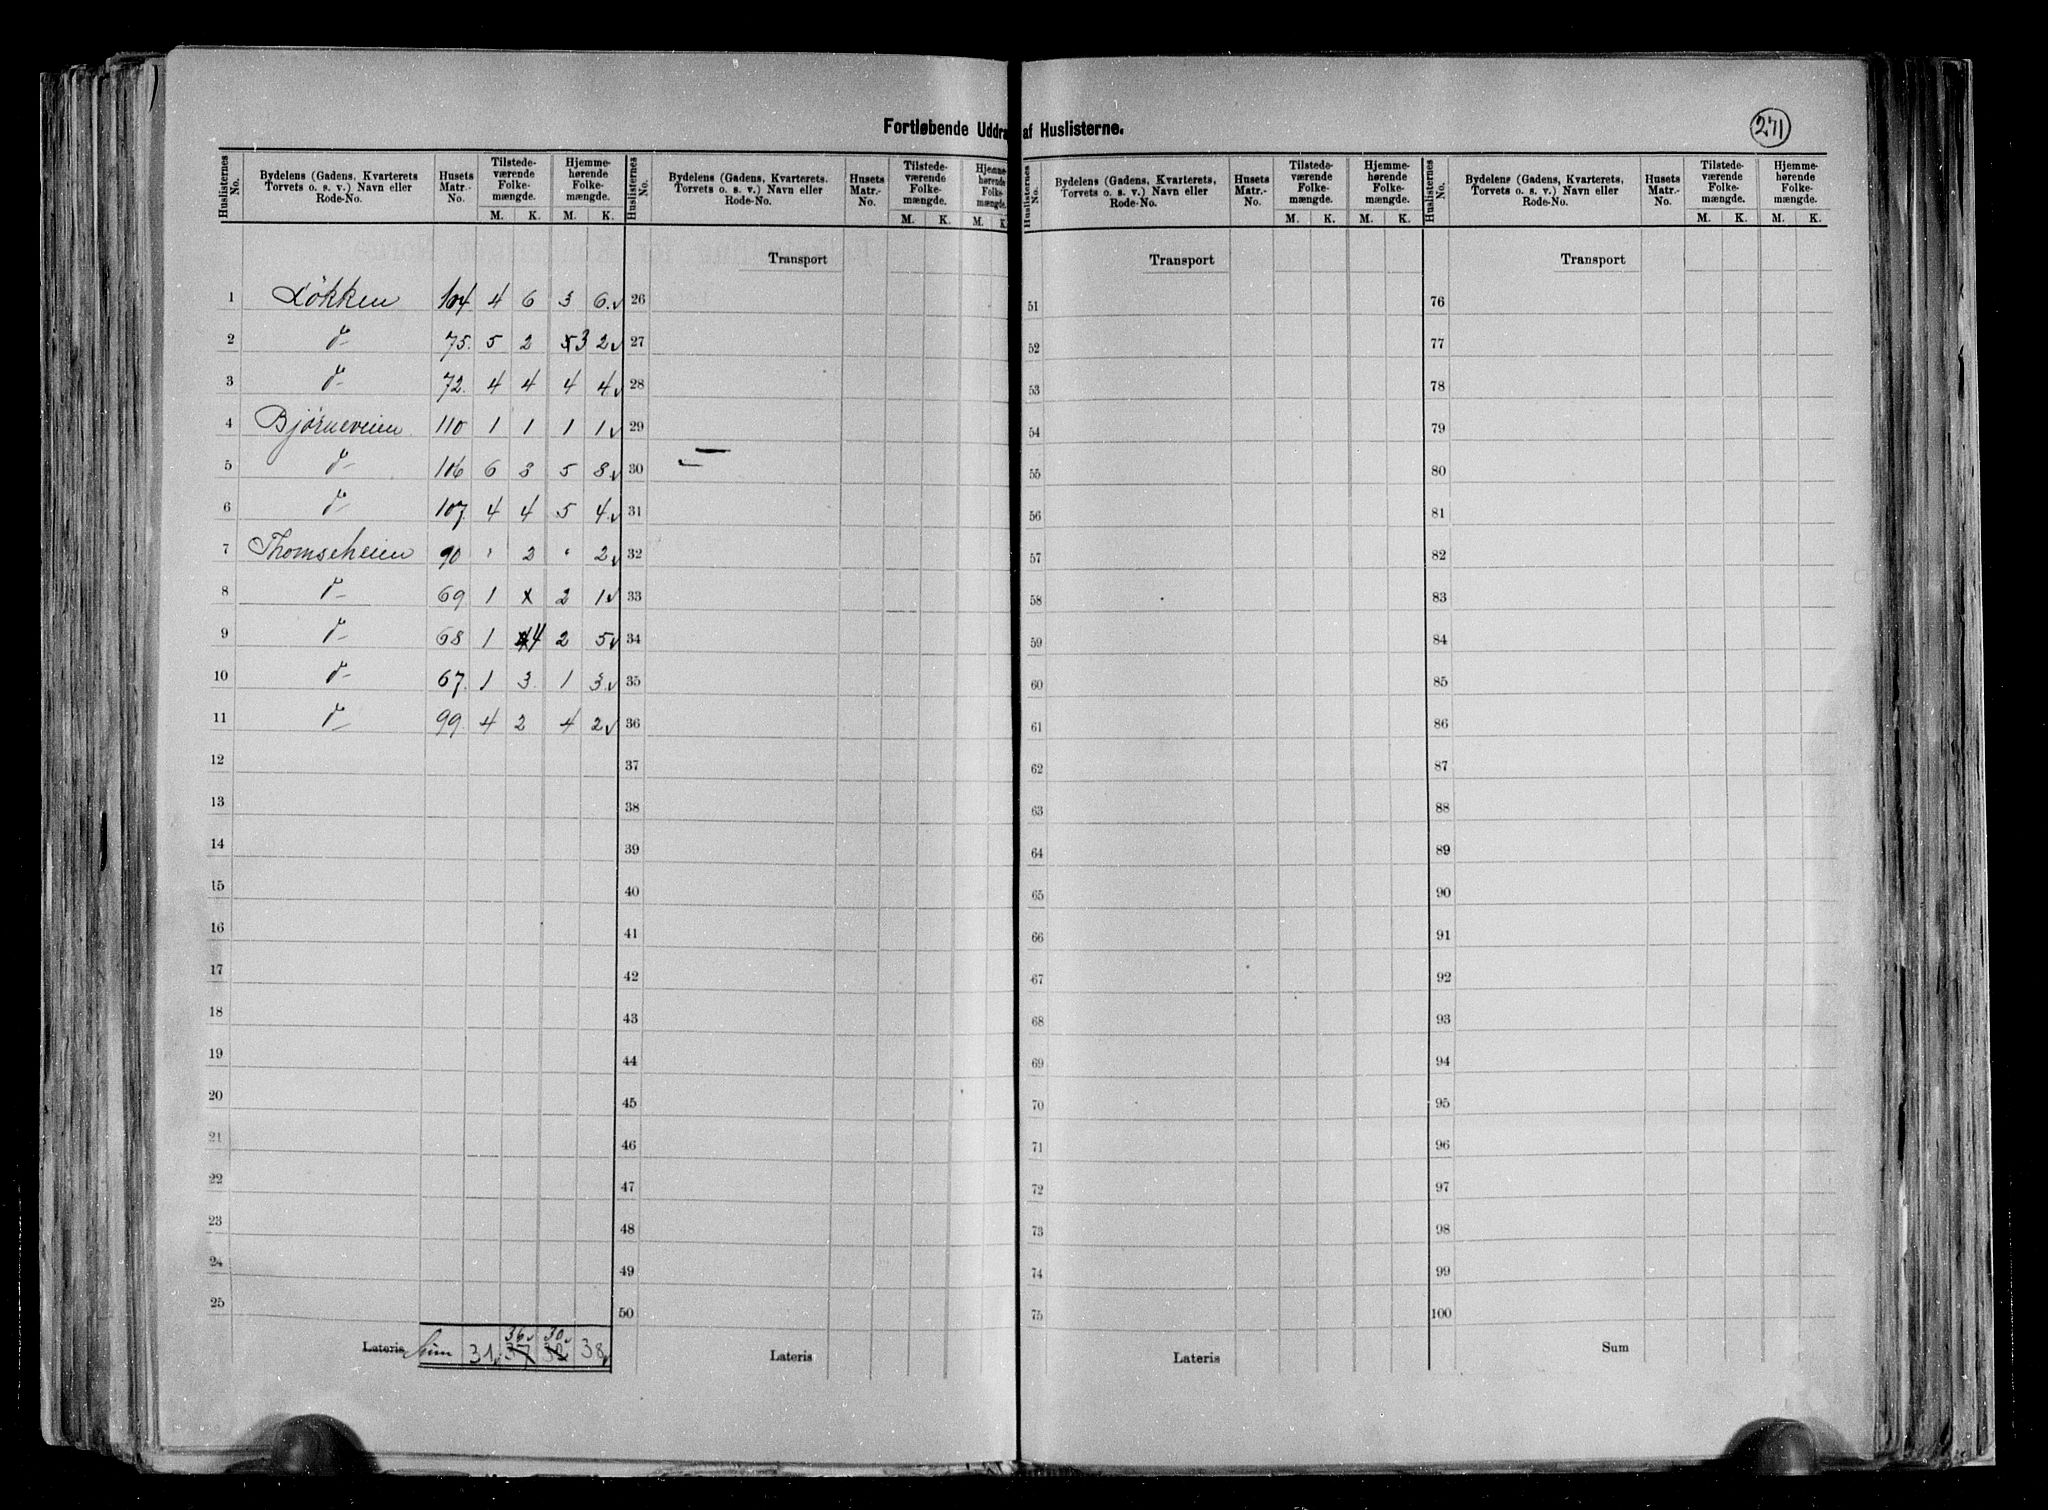 Fortløbende Uddra af Huslisterne.
271
Huslisternes No. | Bydelens (Gadens, Kvarterets Torvets o. s. v.) Navn eller Rode-No. | Husets Matr.-No. | Tilstede-værende Folke-mængde. M. K. | Hjemme-hørende Folke-mængde. M. K.
1 Løkken 104 4 6 3 6
2 d- 75. 5 2 5 3 2
3 d- 72. 4 4 4 4
4 Bjørneveien 110 1 1 1 1
5 d- 106 6 8 5 8
6 d- 107. 4 4 5 4
7 Thomseheien 90 " 2 " 2
8 d- 69 1 x 2 1
9 d- 68 1 4 2 5
10 d- 67. 1 3. 1 3
11 d- 99. 4 2 4 2
12
13
14
15
16
17
18
19
20
21
22
23
24
25
36 30
Lateris Sum 31 37 32 38
Huslisternes No. | Bydelens (Gadens, Kvarterets, Torvets o. s. v.) Navn eller Rode-No. | Husets Matr.-No. | Tilstede-værende Folke-mængde. M. K. | Hjemme-hørende Folke-mængde. M. K.
Transport
26
27
28
29
30
31
32
33
34
35
36
37
38
39
40
41
42
43
44
45
46
47
48
49
50
Lateris
Huslisternes No. | Bydelens (Gadens, Kvarterets, Torvets o. s. v.) Navn eller Rode-No. | Husets Matr.-No. | Tilstede-værende Folke-mængde. M. K. | Hjemme-hørende Folke-mængde. M. K.
Transport
51
52
53
54
55
56
57
58
59
60
61
62
63
64
65
66
67
68
69
70
71
72
73
74
75
Lateris
Huslisternes No. | Bydelens (Gadens, Kvarterets, Torvets o. s. v.) Navn eller Rode-No. | Husets Matr.-No. | Tilstede-værende Folke-mængde. M. K. | Hjemme-hørende Folke-mængde. M. K.
Transport
76
77
78
79
80
81
82
83
84
85
86
87
88
89
90
91
92
93
94
95
96
97
98
99
100
Sum